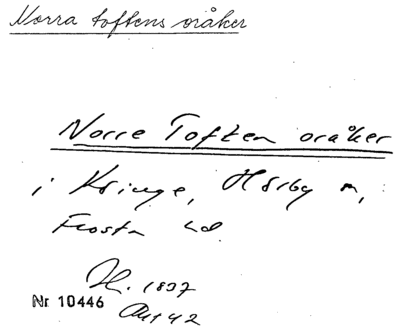 Norra toftens oråker
Norre Toften oråker
i Kringe, Hörby m,
Frosta hd
H. 1837
Nr 10446
Akt 42